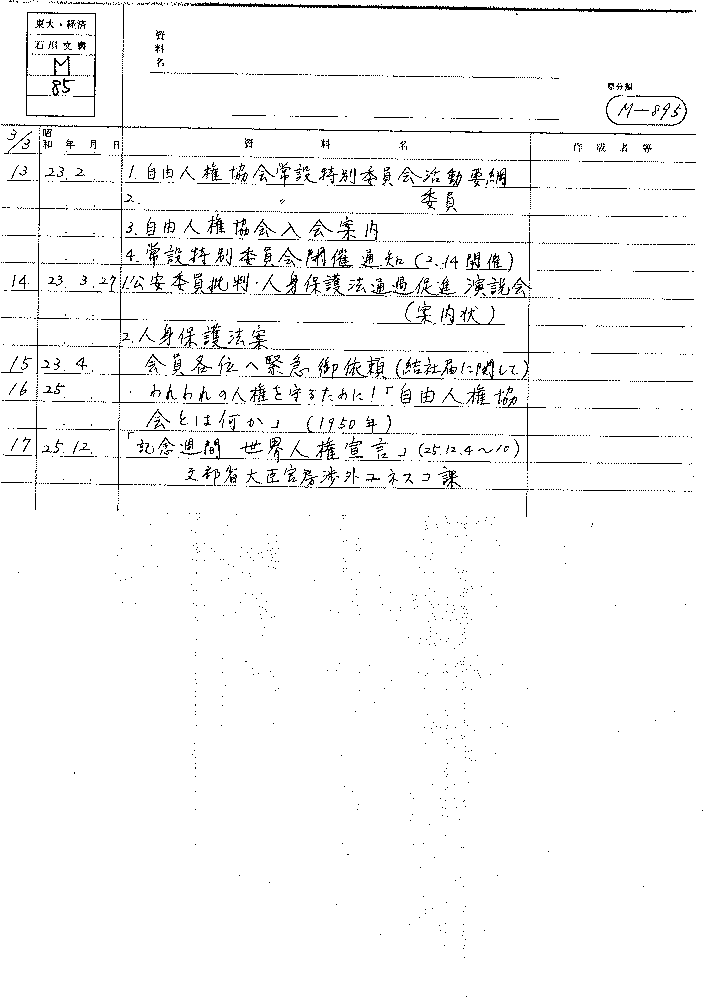 東大・経済
石川文書
M
85
資料名
原分類
M-895
3/3 昭和 年 月 日 資料名 作成者等
13 23.2 1.自由人権協会常設特別委員会活動要綱
2. 〃 委員
3.自由人権協会入会案内
4.常設特別委員会開催通知(2.14開催)
14. 23.3.27 1.公安委員批判・人身保護法通過促進演説会
(案内状)
2.人身保護法案
15 23.4. 会員各位へ緊急御依頼(結社届に関して)
16 25 われわれの人権を守るために!「自由人権協
会とは何か」(1950年)
17 25.12 「記念週間 世界人権宣言」(25.12.4〜10)
文部省大臣官房渉外ユネスコ課